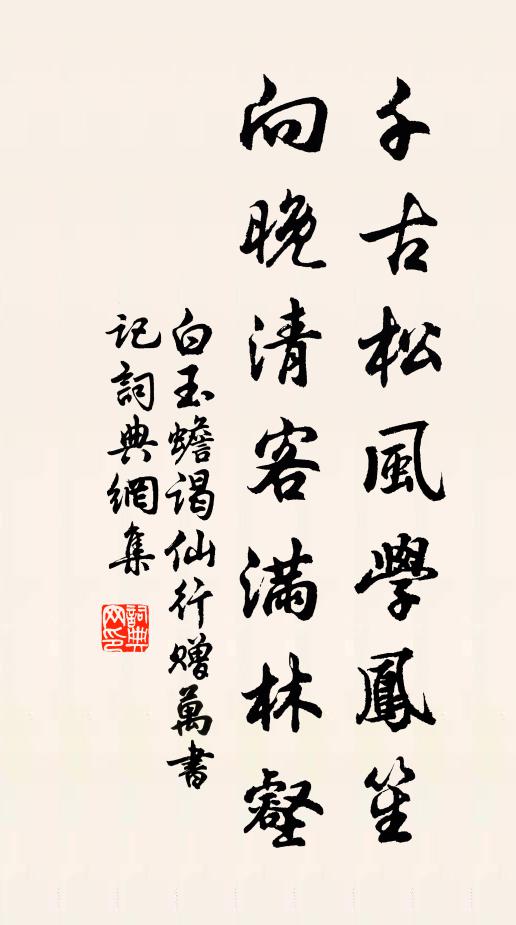 千古松風學鳳笙
向晚清客滿林壑
白玉蟾謁仙行贈萬書
記詞典網集
詞典網印